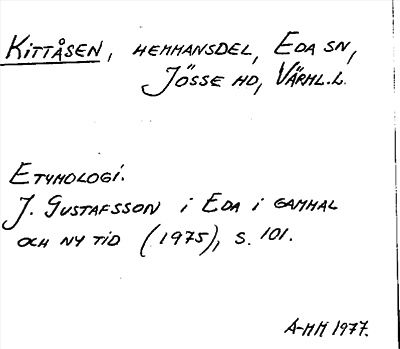 KITTÅSEN, HEMMANSDEL, EDA SN,
JÖSSE HD, VÄRML.L.
ETYMOLOGI.
J. GUSTAFSSON i EDA i GAMMAL
OCH NY TID (1975), S. 101.
A-MM 1977.